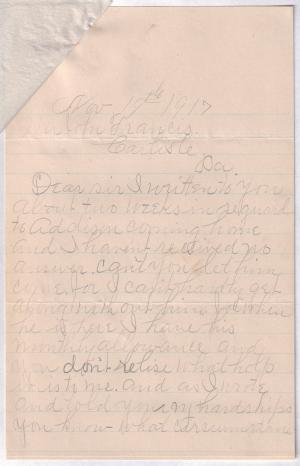 Nov 17th 1917
John Francis.
Carlisle
Pa.
Dear sir I written to you
about two weeks in reguard
to Addison coming home
and I havent received no
answer. cant you let him
come. for I cant hardly get
along with out him for when
he is here I have his
monthly allowance and
you don't relise what help
it is to me. and as I wrote
and told you my hardships
you know what circumstance